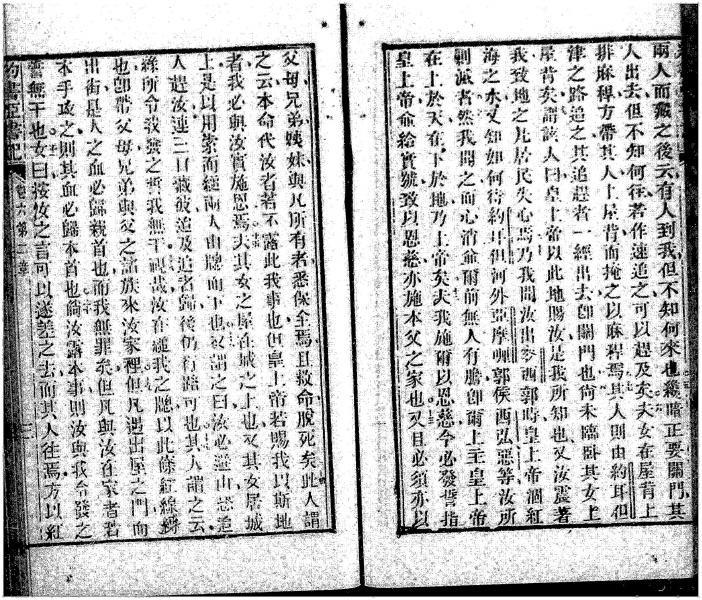 兩人而藏之後云有人到我但不知何來也幾暗正要關門其
人出去但不知何往若作速追之可以趕及矣夫女在屋背上
排麻稈方帶其人上屋背而掩之以麻稈焉其人則由約耳但
津之路追之其追趕者一經出去卽關門也尚未臨臥其女上
屋背矣謂該人曰皇上帝以此地賜汝是我所知也又汝震著
我致地之凡居民失心焉乃我聞汝出麥西郭時皇上帝涸紅
海之水又知如何待約耳但河外亞摩唎郭侯西弘惡等汝所
剿滅者然我聞之而心消爾前無人有膽卽爾上主皇上帝
在上於天在下於地乃上帝矣夫我施爾以恩慈今必發誓指
皇上帝給實號致以恩慈亦施本父之家也又且必須亦以
父母兄弟姊妹與凡所有者悉保全焉且救命脫死矣此人謂
之云本命代汝者若不露此我事也但皇上帝若賜我以斯地
者我必與汝實施恩焉夫其女之屋在城之上也又其女居城
上是以用索而縋兩人由牕而下也又謂之曰汝必避山恐追
人趕汝連三日藏彼追及追者歸後仍行路可也其人謂之云
所令我發之誓我無干視哉汝在縋我之牕以此條紅線
也卽帶父母兄弟與父之諸族來汝家裡但凡遇出屋之門而
出街是人之血必歸親首也而我無罪矣但凡與汝在家者若
水手攻之則其血必歸本首也倘汝露本事則汝與我令發之
誓無干也女曰按汝之言可以遂差之去而其人往焉方以紅
約書亞書記
卷六第二章
二